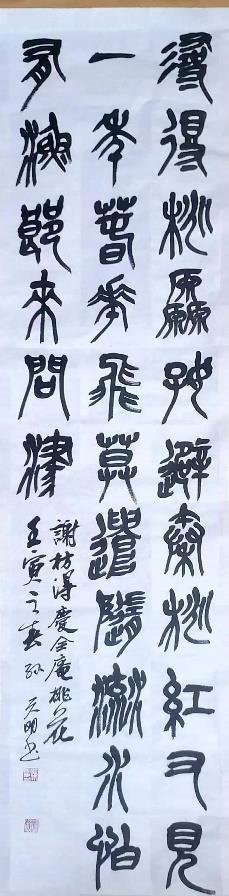 尋得桃厵好避秦桃紅又見
一年春花飛莫遣隨流水怕
有漁郎來問津
謝枋得慶全庵桃花
壬寅之春孫天明书